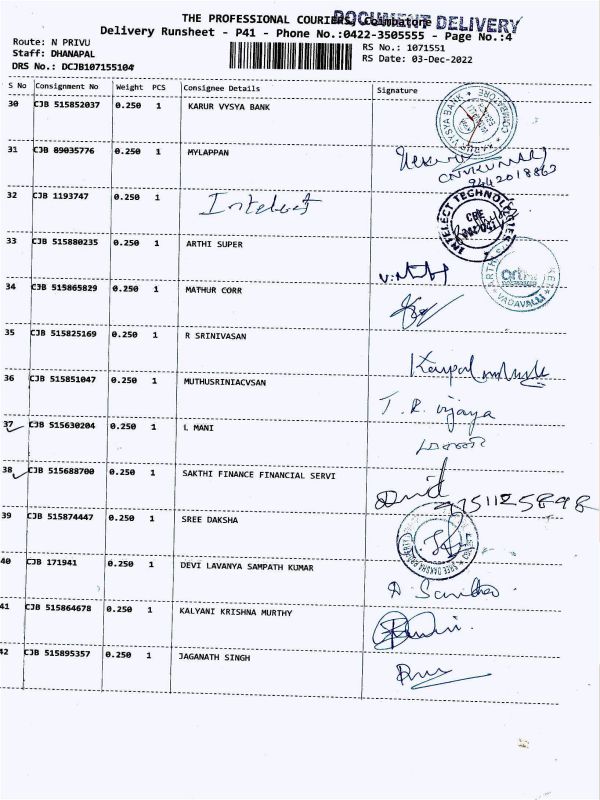 THE PROFESSIONAL COURIERS, Coimbatore
DOCUMENT DELIVERY
Delivery Runsheet - P41 - Phone No.:0422-3505555 - Page No.:4
Route: N PRIVU
RS No.: 1071551
Staff: DHANAPAL
RS Date: 03-Dec-2022
DRS No.: DCJB107155104
S No Consignment No Weight PCS Consignee Details Signature
30 CJB 515852037 0.250 1 KARUR VYSYA BANK
KARUR VYSYA BANK COIMBATORE
31 CJB 89035776 0.250 1 MYLAPPAN
9442018862
32 CJB 1193747 0.250 1 Intelect
INTELECT TECHNOLOGIES CBE
33 CJB 515880235 0.250 1 ARTHI SUPER
VADAVALLI
34 CJB 515865829 0.250 1 MATHUR CORR
35 CJB 515825169 0.250 1 R SRINIVASAN
36 CJB 515851047 0.250 1 MUTHUSRINIACVSAN
T. R. Vijaya
37 CJB 515630204 0.250 1 L MANI
38 CJB 515688700 0.250 1 SAKTHI FINANCE FINANCIAL SERVI
9751125898
39 CJB 515874447 0.250 1 SREE DAKSHA
SREE DAKSHA
40 CJB 171941 0.250 1 DEVI LAVANYA SAMPATH KUMAR
41 CJB 515864678 0.250 1 KALYANI KRISHNA MURTHY
42 CJB 515895357 0.250 1 JAGANATH SINGH